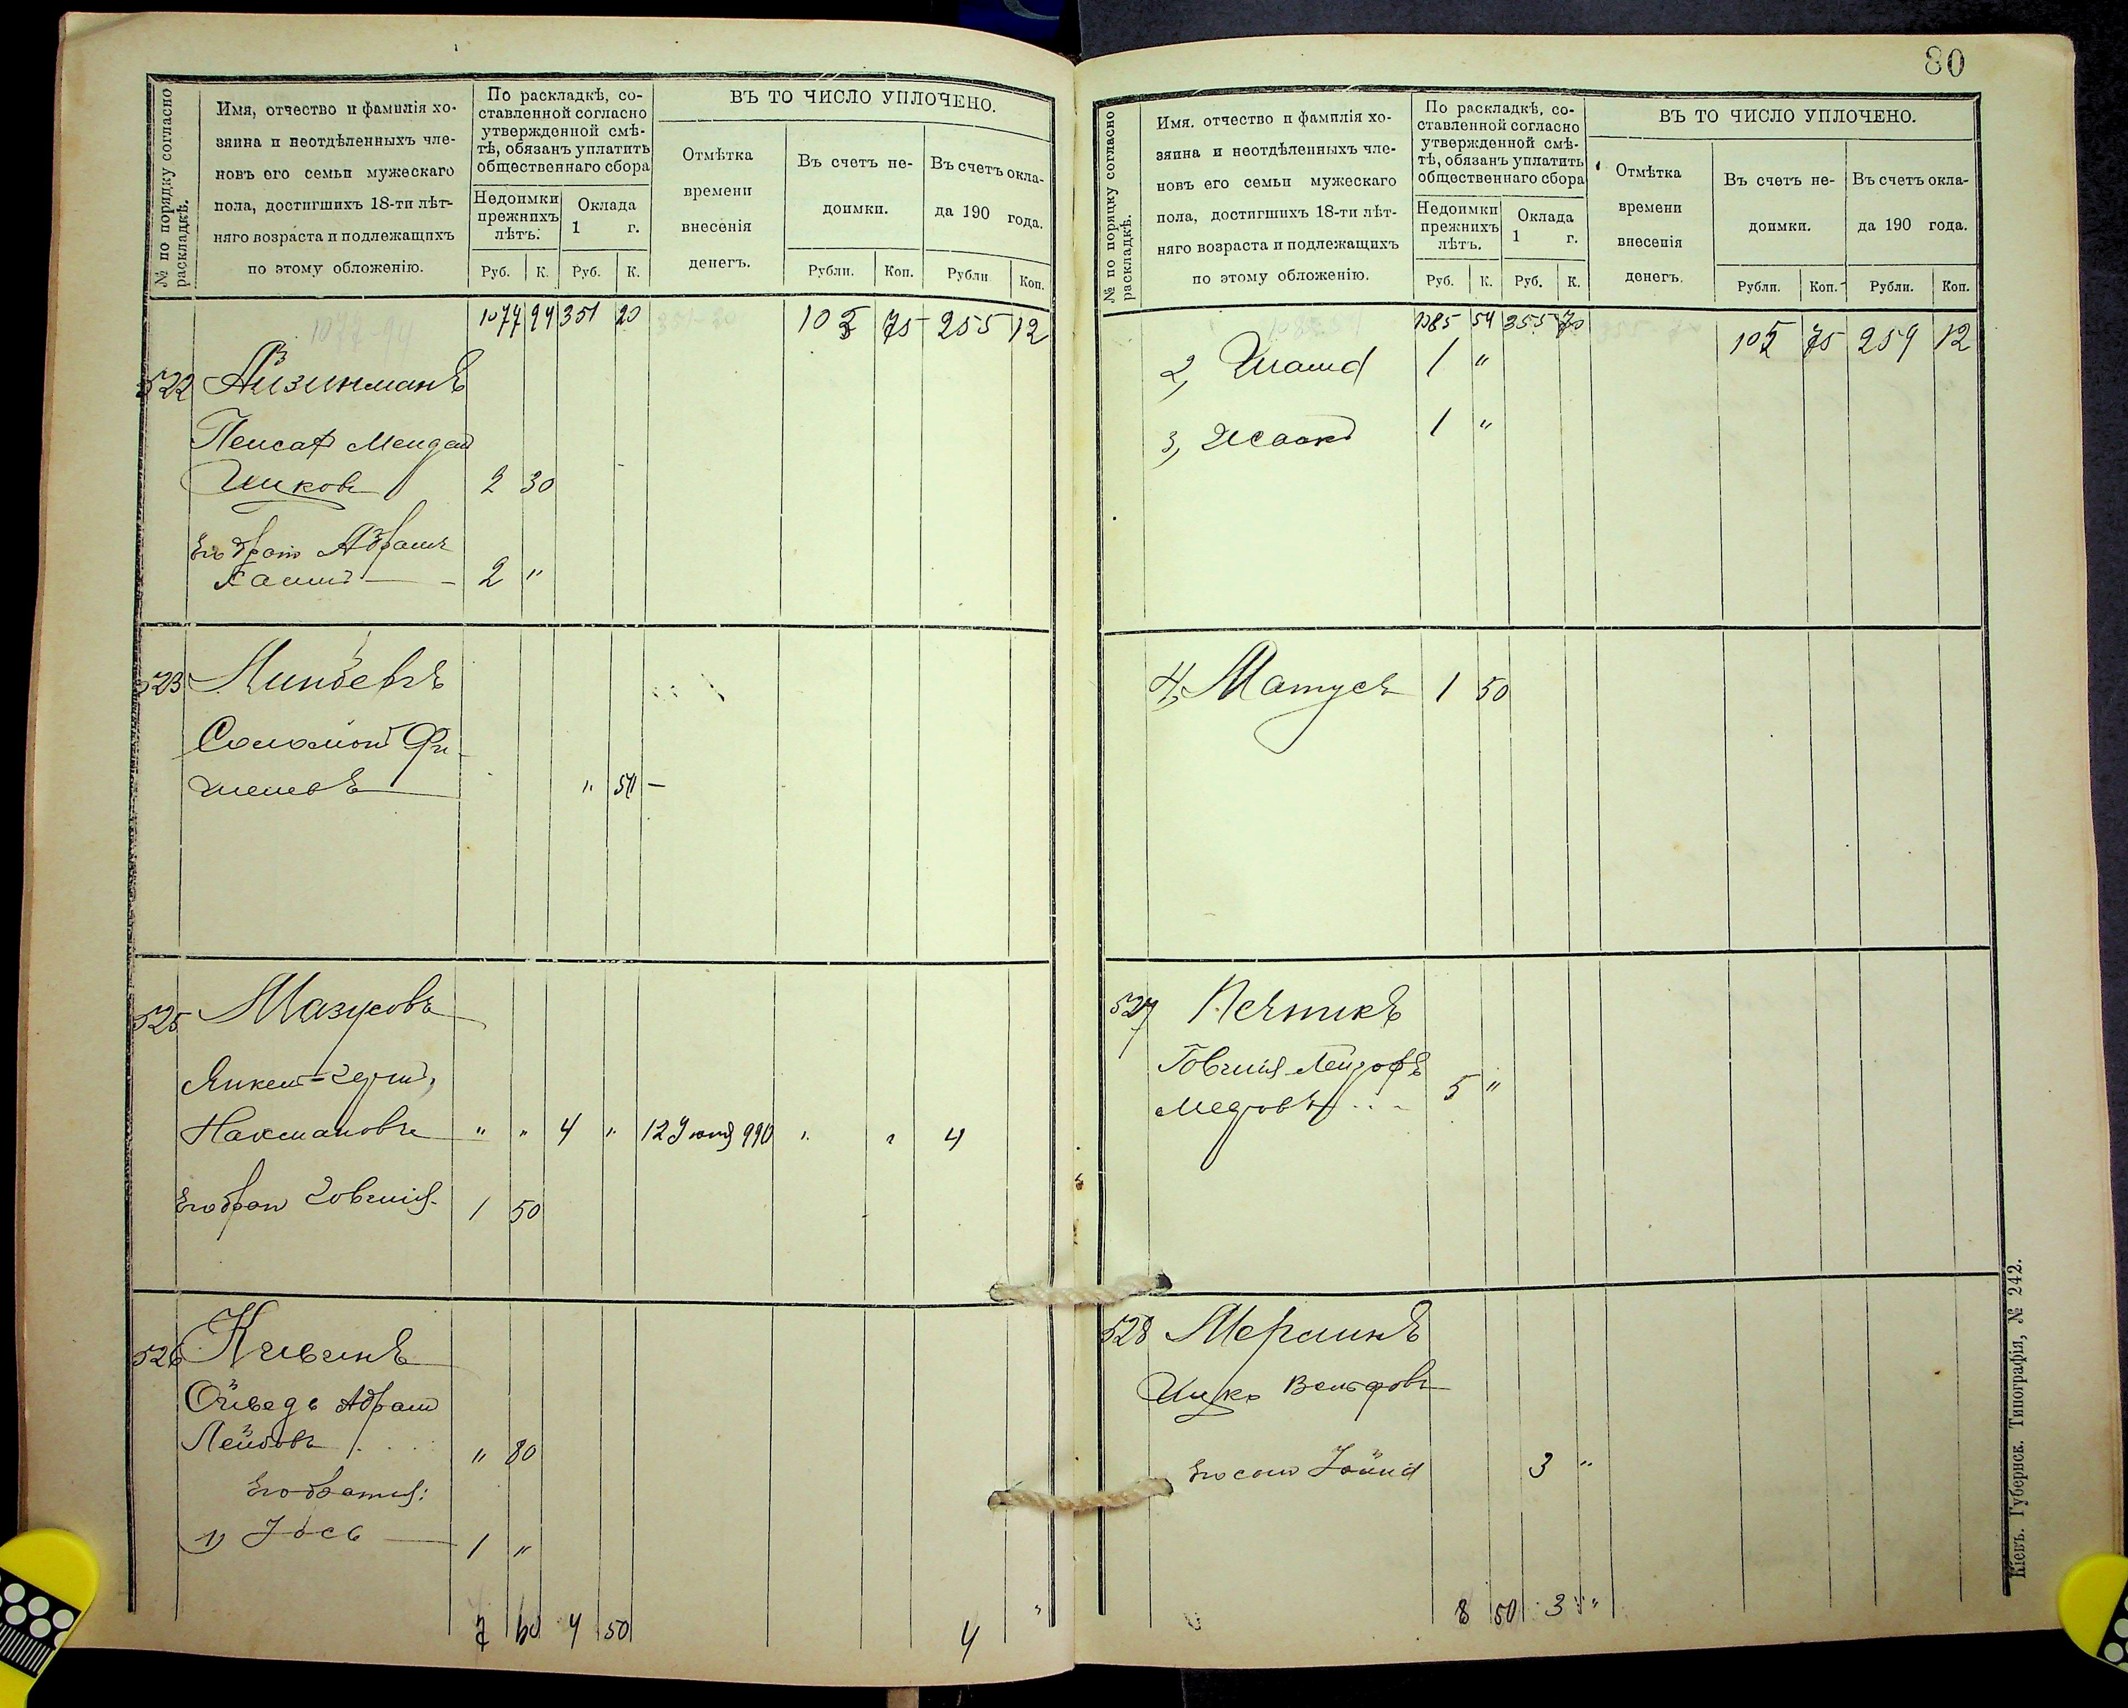 № по порядку согласно раскладкѣ.
Имя, отчество и фамилія хо-
зяина и неотдѣленныхъ чле-
новъ его семьи мужескаго
пола, достигшихъ 18-ти лѣт-
няго возраста и подлежащихъ
по этому обложенію.
По раскладкѣ, со-
ставленной согласно
утвержденной смѣ-
тѣ, обязанъ уплатить
общественнаго сбора
Недоимки
прежнихъ
лѣтъ.
Оклада
1 г.
Руб. К. Руб. К.
ВЪ ТО ЧИСЛО УПЛОЧЕНО.
Отмѣтка
времени
внесенія
денегъ.
Въ счетъ не-
доимки.
Въ счетъ окла-
да 190 года.
Рубли. Коп. Рубли Коп.
1077 94 351 20 105 75 255 12
522 Айзинманъ
Мендел
Ицковъ 2 30
Его братъ Абрамъ
Хаимъ 2 "
523
Соломонъ Фи-
шелевъ " 50 -
525 Мазусовъ
Янкель
Нахмановъ " " 4 " 12 Іюня 990 " " 4
Его братъ Іовшія 1 50
526 Кивинъ
Абрам
Лейбовъ " 80
Его братья:
1) Іось 1 "
7 60 4 50 4 "
80
№ по порядку согласно раскладкѣ.
Имя. отчество и фамилія хо-
зяина и неотдѣленныхъ чле-
новъ его семьи мужескаго
пола, достигшихъ 18-ти лѣт-
няго возраста и подлежащихъ
по этому обложенію.
По раскладкѣ, со-
ставленной согласно
утвержденной смѣ-
тѣ, обязанъ уплатить
общественнаго сбора
Недоимки
прежнихъ
лѣтъ.
Оклада
1 г.
Руб. К. Руб. К.
ВЪ ТО ЧИСЛО УПЛОЧЕНО.
Отмѣтка
времени
внесенія
денегъ.
Въ счетъ не-
доимки.
Въ счетъ окла-
да 190 года.
Рубли. Коп. Рубли. Коп.
1085 54 355 70 105 75 259 12
2, 1 "
3, Исаакъ 1 "
4, Матусъ 1 50
527 Печникъ
Іовшія
5 "
528 Мерлинъ
Ицко Вольфовъ
Его сынъ 3 "
8 50 3 "
Кіевъ. Губернск. Типографія, № 242.